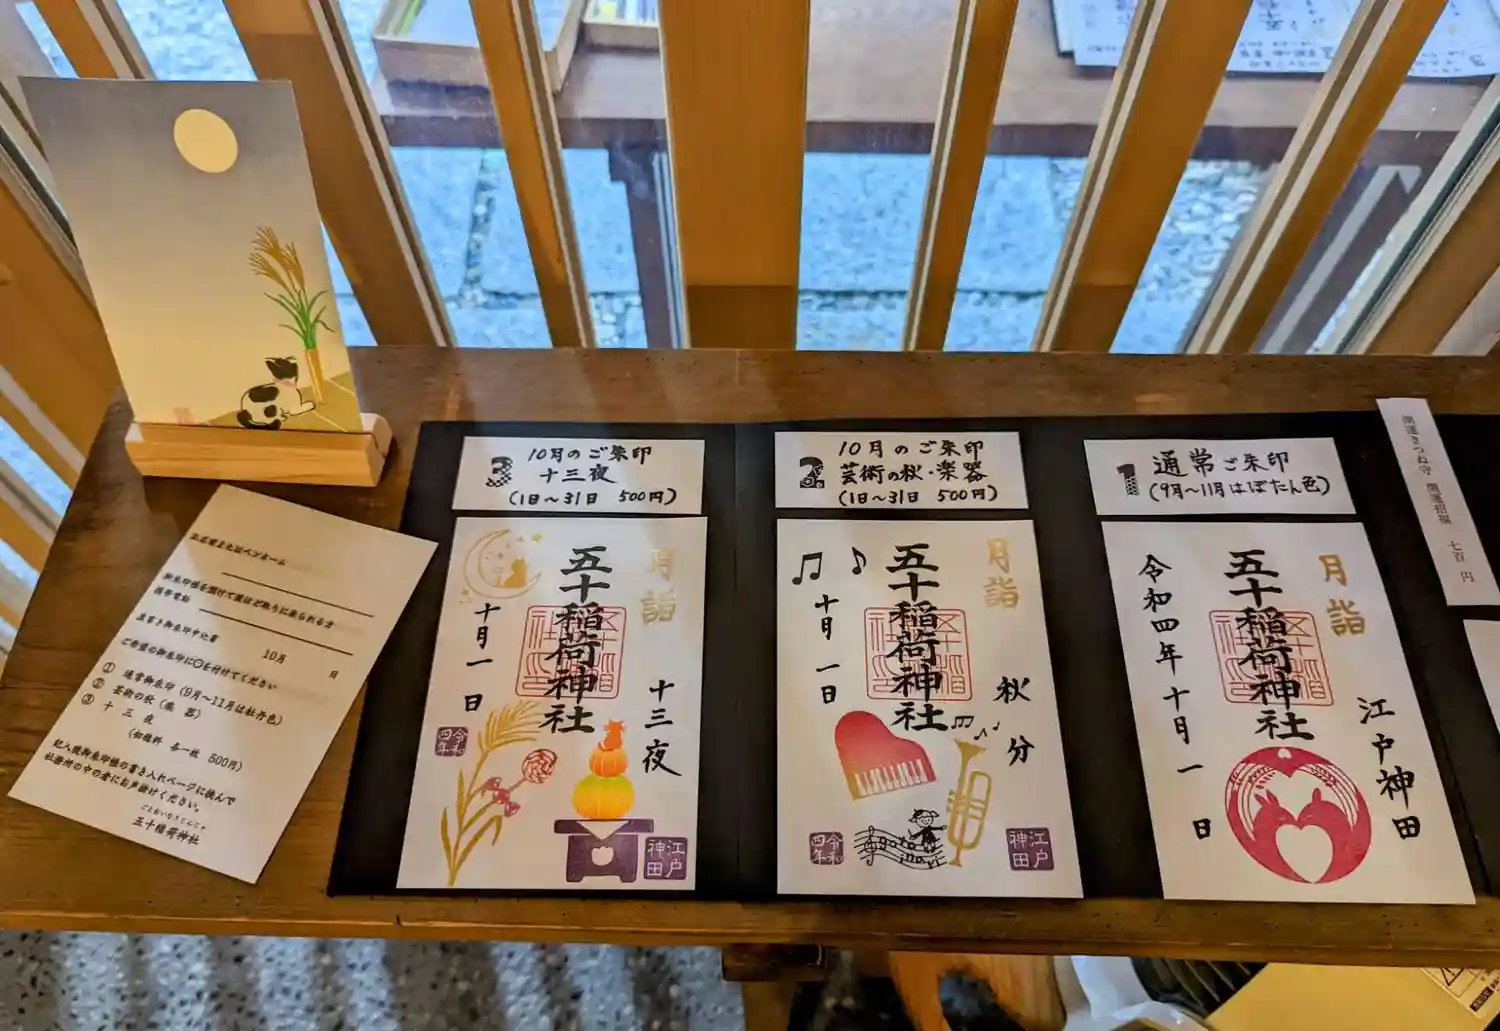 3
10月のご朱印
十三夜
(1日〜31日 500円)
2
10月のご朱印
芸術の秋・楽器
(1日〜31日 500円)
1
通常ご朱印
(9月〜11月はぼたん色)
開運きつね守 開運招福 七百円
月詣
五十稲荷神社
十月一日
十三夜
令和四年
江戸神田
月詣
五十稲荷神社
十月一日
秋分
令和四年
江戸神田
月詣
五十稲荷神社
令和四年十月一日
江戸神田
お名前またはペンネーム
御朱印帳を預けて後ほど取りに来られる方
携帯電話
直書き御朱印申込書
10月 日
ご希望の御朱印に〇を付けてください
① 通常御朱印(9月〜11月は牡丹色)
② 芸術の秋(楽器)
③ 十三夜
(初穂料 各一社 500円)
記入後御朱印帳の書き入れページに挟んで
社務所の中の者にお声掛けください。
五十稲荷神社